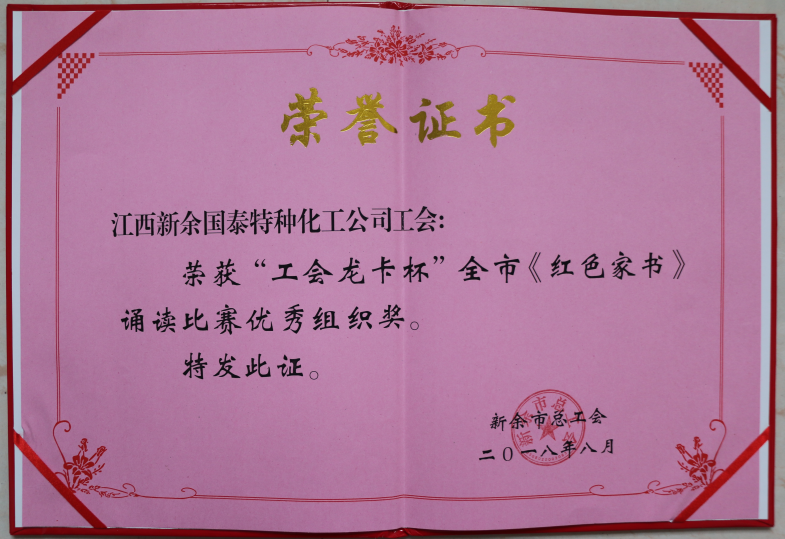 荣誉证书
江西新余国泰特种化工公司工会：
荣获“工会龙卡杯”全市《红色家书》
诵读比赛优秀组织奖。
特发此证。
新余市总工会
二〇一八年八月
新余市总工会